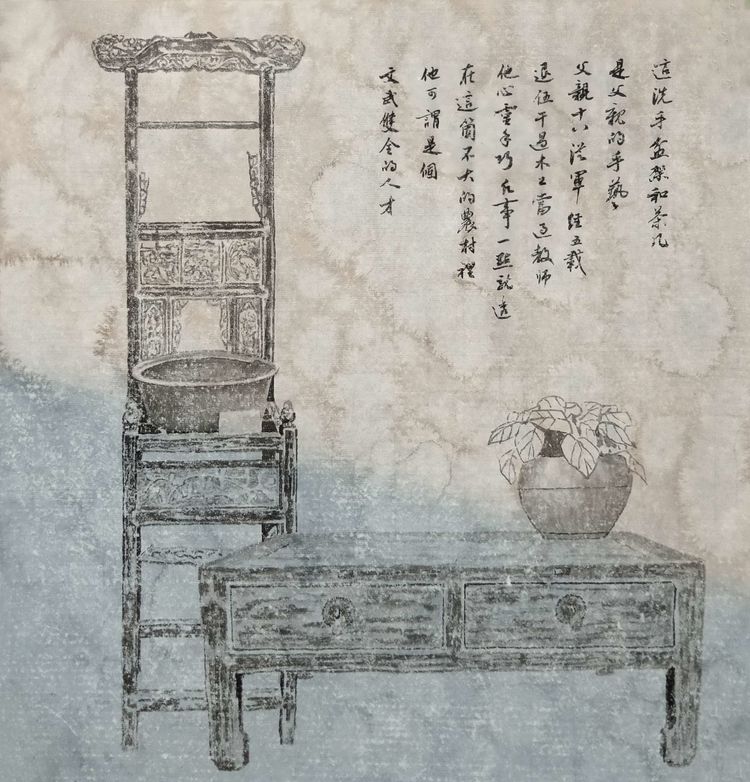 這洗手盆架和茶几
是父親的手藝
父親十八從軍經五載
退伍干過木工當过教师
他心靈手巧凡事一點就透
在這箇不大的農村裡
他可謂是個
文武雙全的人才